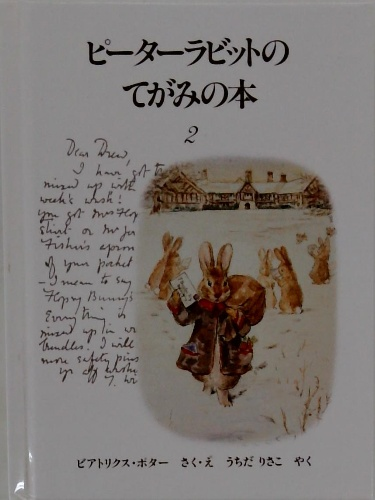 ピーターラビットの
てがみの本
2
Dear Drew,
I have got t
mixed up with
week's wash!
you got Mrs Flop
Shirt or Mr Je
Fisher's apron
of your pocket
- I mean to say
Flopsy Bunny's
Everything is
mixed up in w
bundles. I will
more safety pins
wishe
T. wi
ビアトリクス・ポター さく・え うちだ りさこ やく